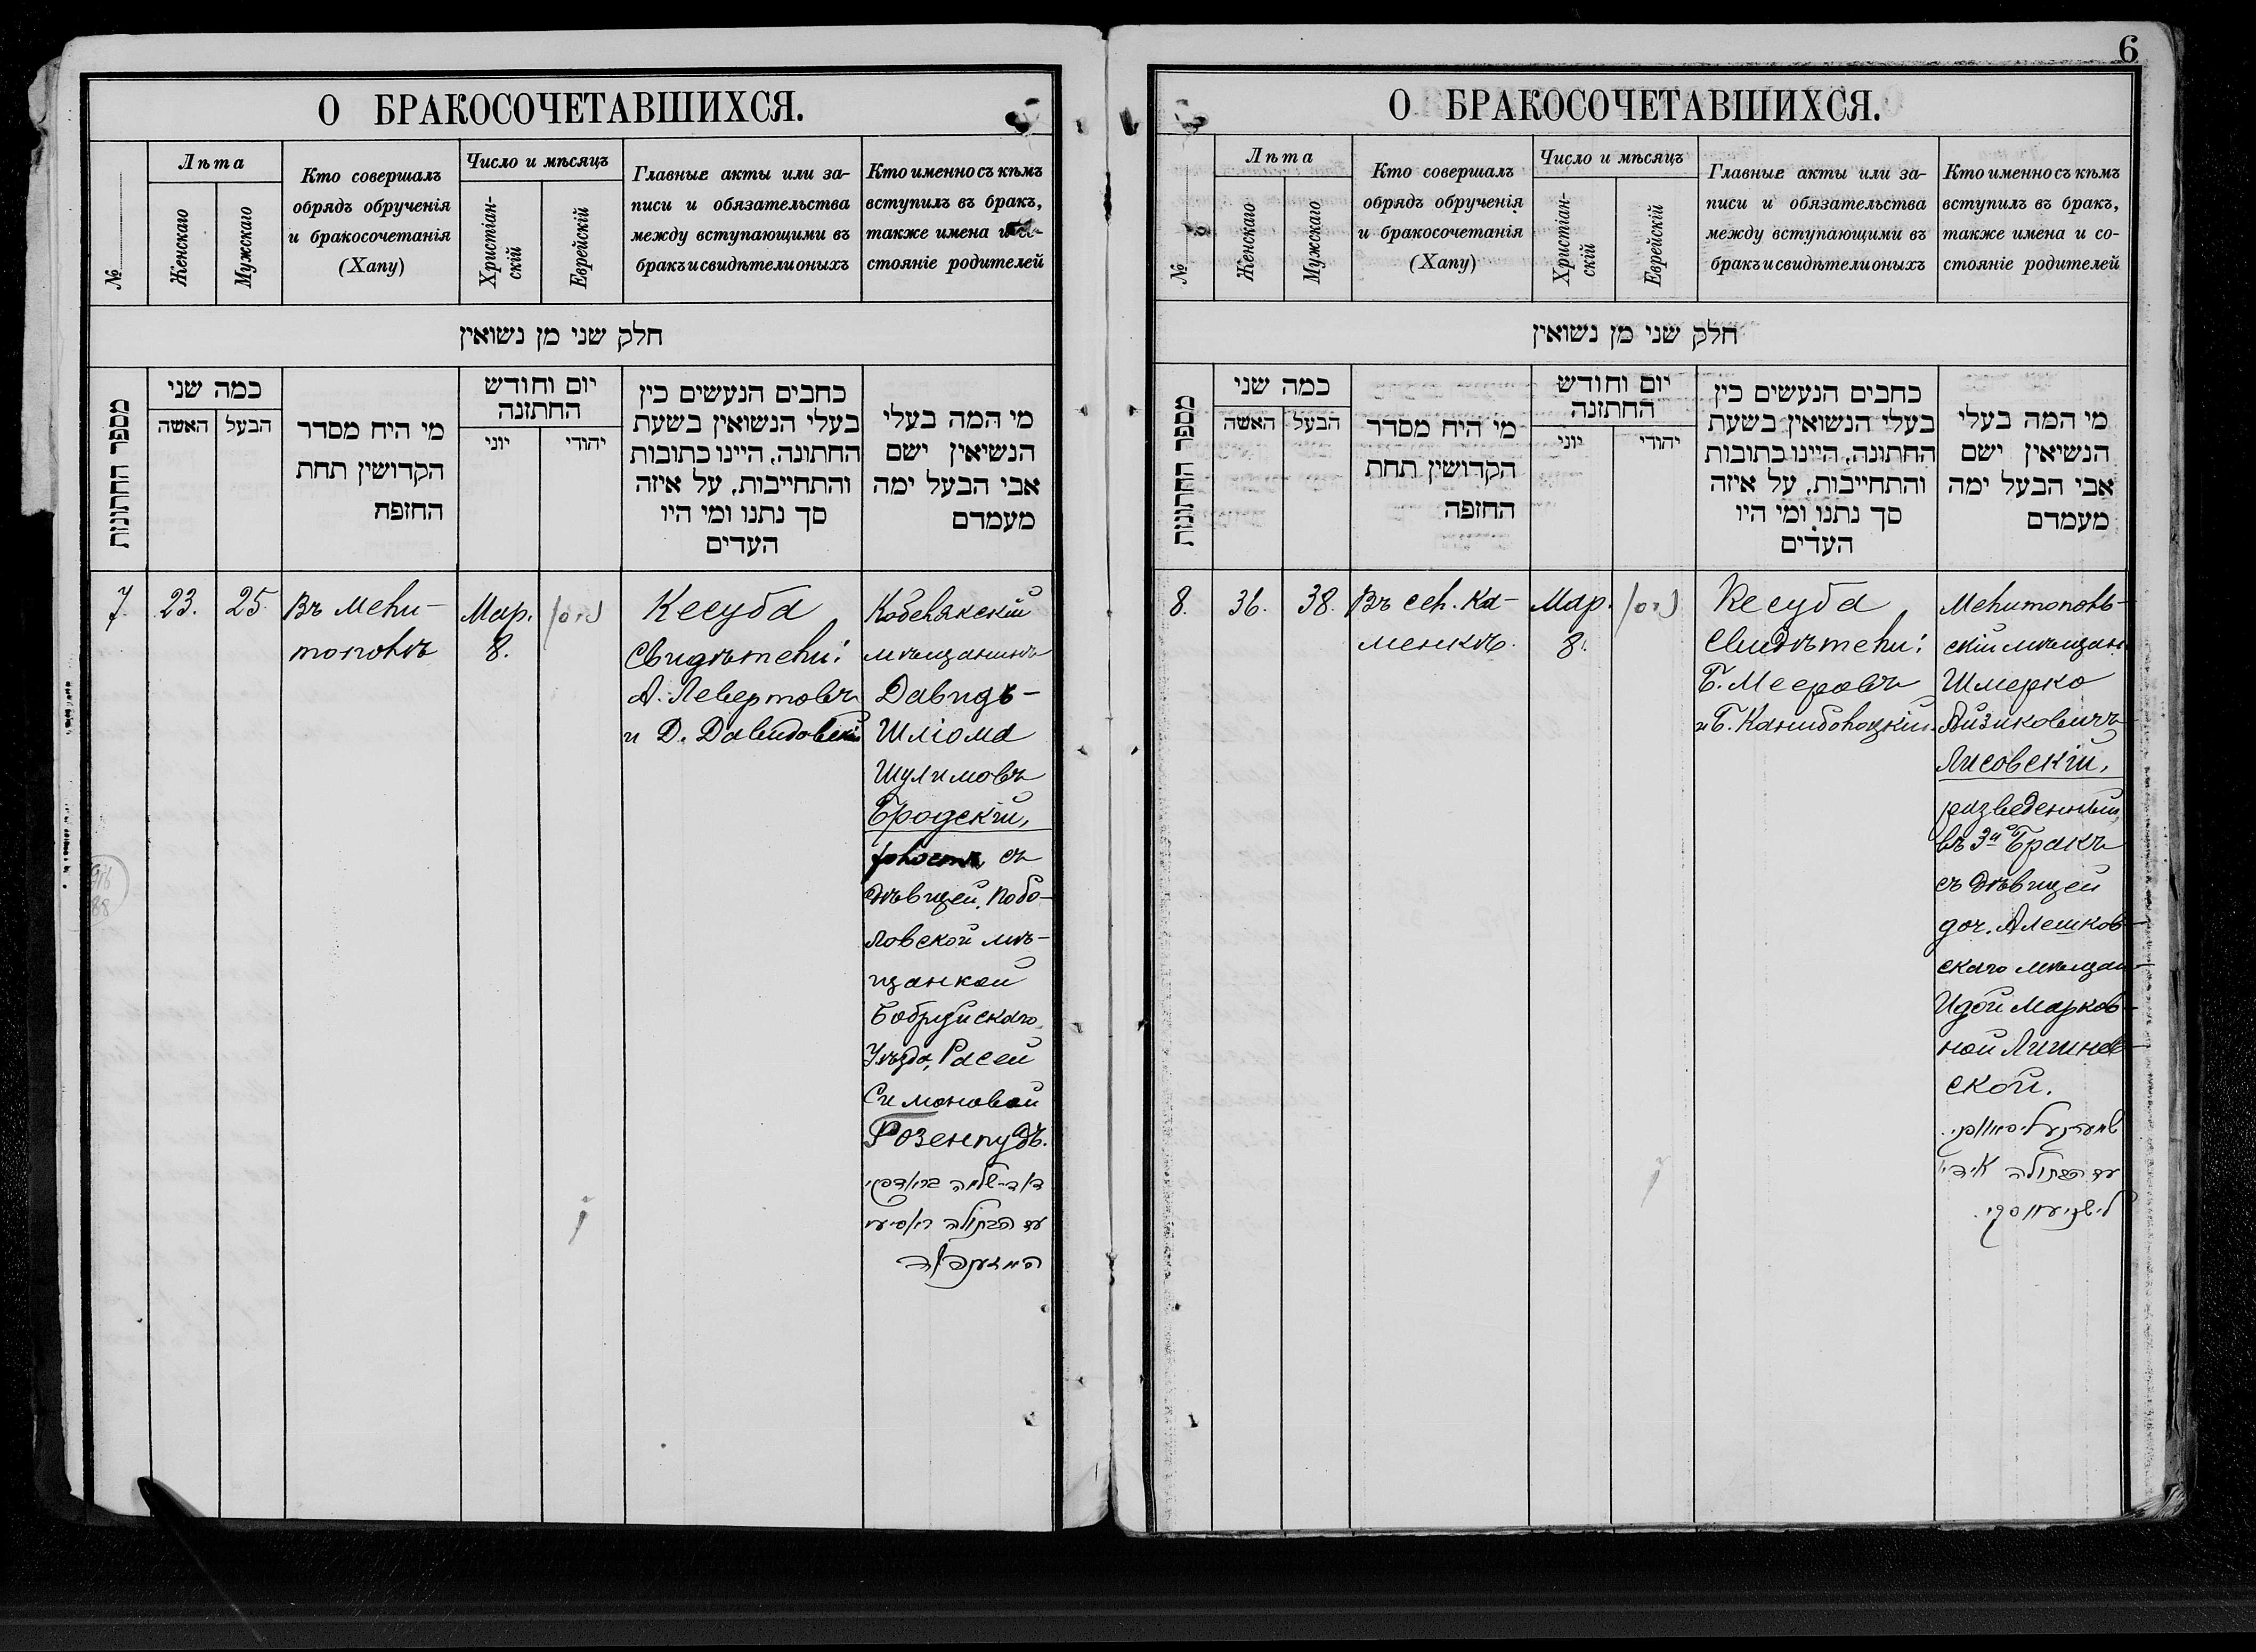 6
О БРАКОСОЧЕТАВШИХСЯ.
№
Лѣта
Женскаго
Мужскаго
Кто совершалъ
обрядъ обрученія
и бракосочетанія
(Хапу)
Число и мѣсяцъ
Христіан-
скій
Еврейскій
Главные акты или за-
писи и обязательства
между вступающими въ
бракъ и свидѣтели оныхъ
Кто именно съ кѣмъ
вступилъ въ бракъ,
также имена и со-
стояніе родителей
חלק שני מן נשואין
מספר החתונות
כמה שני
האשה
הבעל
מי היח מסדר
הקדושין תחת
החופח
יום וחודש
החתונה
יוני
יהודי
כחבים הנעשים בין
בעלי הנשואין בשעת
החתונה, היינו כתובות
והתחייבות, על איזה
סך נתנו ומי היו
העדים
מי המה בעלי
הנשיאין ישם
אבי הבעל ימה
מעמדם
7.
23.
25
Въ Мели-
тополѣ
Мар.
8.
Кесуба
Свидѣтели:
А. Левертовъ
и Д. Давидовскій
Кобелякскій
мѣщанинъ
Давидъ-
Шліома
Шулимовъ
Бродскій,
холостъ, съ
дѣвицей, Побо-
ловской мѣ-
щанкой
Бобруйскаго
Уѣзда, Расей
Симоновой
Розенпудъ.
עם הבתולה
О БРАКОСОЧЕТАВШИХСЯ.
№
Лѣта
Женскаго
Мужскаго
Кто совершалъ
обрядъ обрученія
и бракосочетанія
(Хапу)
Число и мѣсяцъ
Христіан-
скій
Еврейскій
Главные акты или за-
писи и обязательства
между вступающими въ
бракъ и свидѣтели оныхъ
Кто именно съ кѣмъ
вступилъ въ бракъ,
также имена и со-
стояніе родителей
חלק שני מן נשואין
מספר החתונות
כמה שני
האשה
הבעל
מי היח מסדר
הקדושין תחת
החופה
יום וחודש
החתונה
יוני
יהודי
כחבים הנעשים בין
בעלי הנשואין בשעת
החתונה, היינו כתובות
והתחייבות, על איזה
סך נתנו ומי היו
העדים
מי המה בעלי
הנשיאין ישם
אבי הבעל ימה
מעמדם
8.
36.
38.
Въ сел. Ка-
менкѣ.
Мар.
8.
Кесуба
Свидѣтели:
Б. Мееровъ
и Б. Каниболоцкій.
Мелитополь-
скій мѣщан.
Шмерко
Айзиковичъ
Лисовскій,
разведенный,
въ 3й бракъ
съ дѣвицей
доч. Алешков-
скаго мѣщан-
Идой Марков-
ной Лишнев-
ской.
עם הבתולה אידא